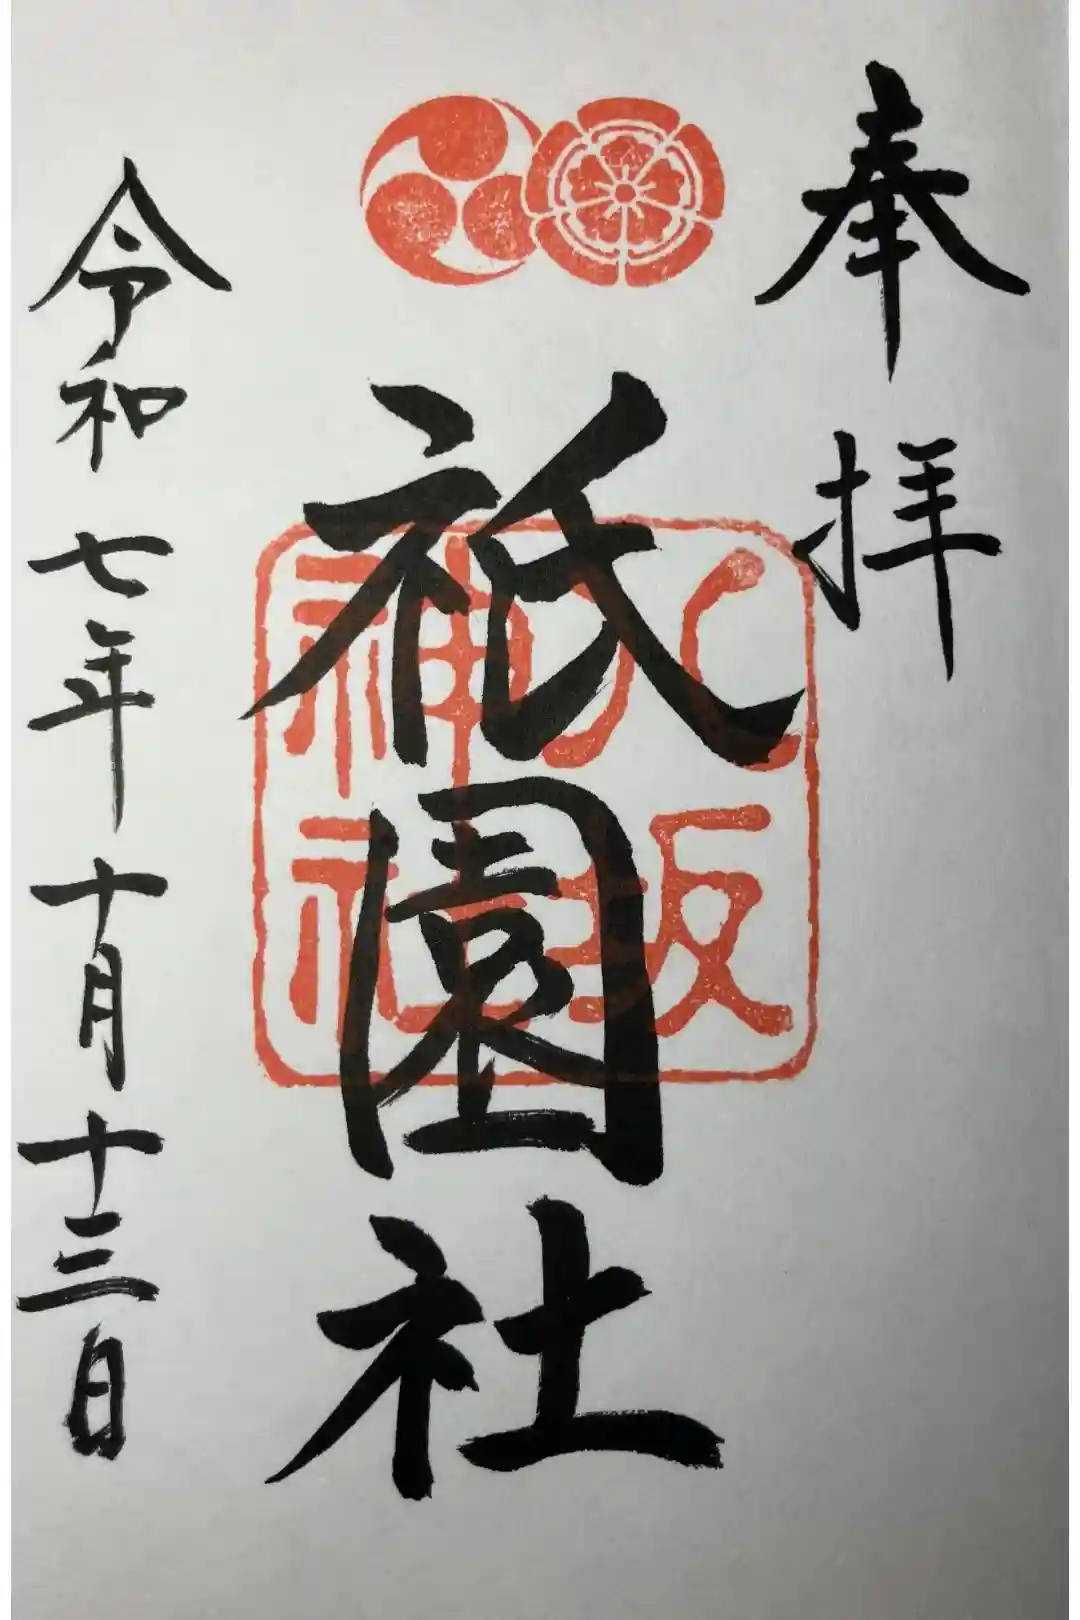 奉拝
祇園社
八坂
神社
令和七年十月十三日